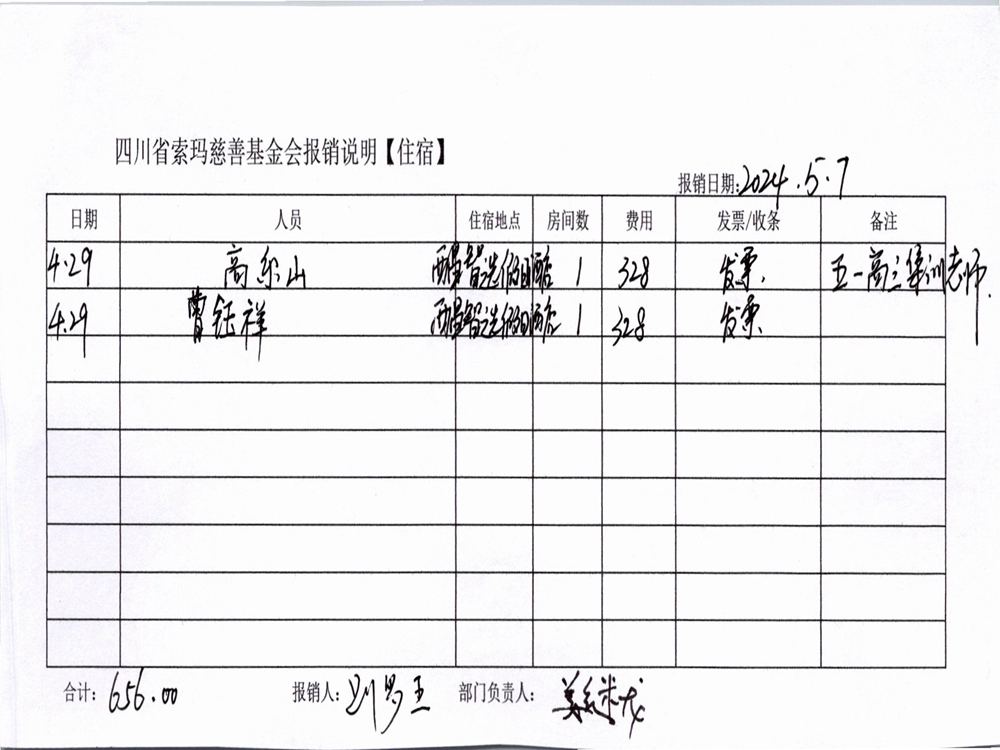 四川省索玛慈善基金会报销说明【住宿】
报销日期:2024.5.7
日期 人员 住宿地点 房间数 费用 发票/收条 备注
4.29 高乐山 西昌智选假日酒店 1 328 发票. 五一高三集训老师.
4.29 曾钰祥 西昌智选假日酒店 1 328 发票.
合计: 656.00 报销人: 部门负责人: